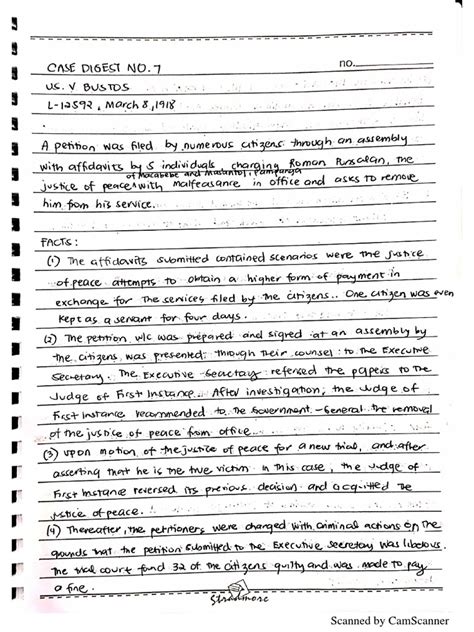 CASE DIGEST NO. 7
no.
U.S. V BUSTOS
L-12592, March 8, 1918
A petition was filed by numerous citizens through an assembly
with affidavits by 5 individuals charging Roman Punsalan, the
of Macabebe and Masantol, Pampanga
justice of peace with malfeasance in office and asks to remove
him from his service.
FACTS:
(1) The affidavits submitted contained scenarios were the justice
of peace attempts to obtain a higher form of payment in
exchange for the services filed by the citizens.. One citizen was even
kept as a servant for four days.
(2) The petition w/c was prepared and signed at an assembly by
the citizens was presented through their counsel to the Executive
Secretary. The Executive Secretary referred the papers to the
Judge of First Instance. After investigation, the Judge of
First Instance recommended to the Government-General the removal
of the justice of peace from office.
(3) Upon motion of the justice of peace for a new trial, and after
asserting that he is the true victim in this case, the Judge of
First Instance reversed its previous decision and acquitted the
justice of peace.
(4) Thereafter, the petitioners were charged with criminal actions on the
grounds that the petition submitted to the Executive Secretary was libelous.
The trial court found 32 of the citizens guilty and was made to pay
a fine.
Stradmore
Scanned by CamScanner